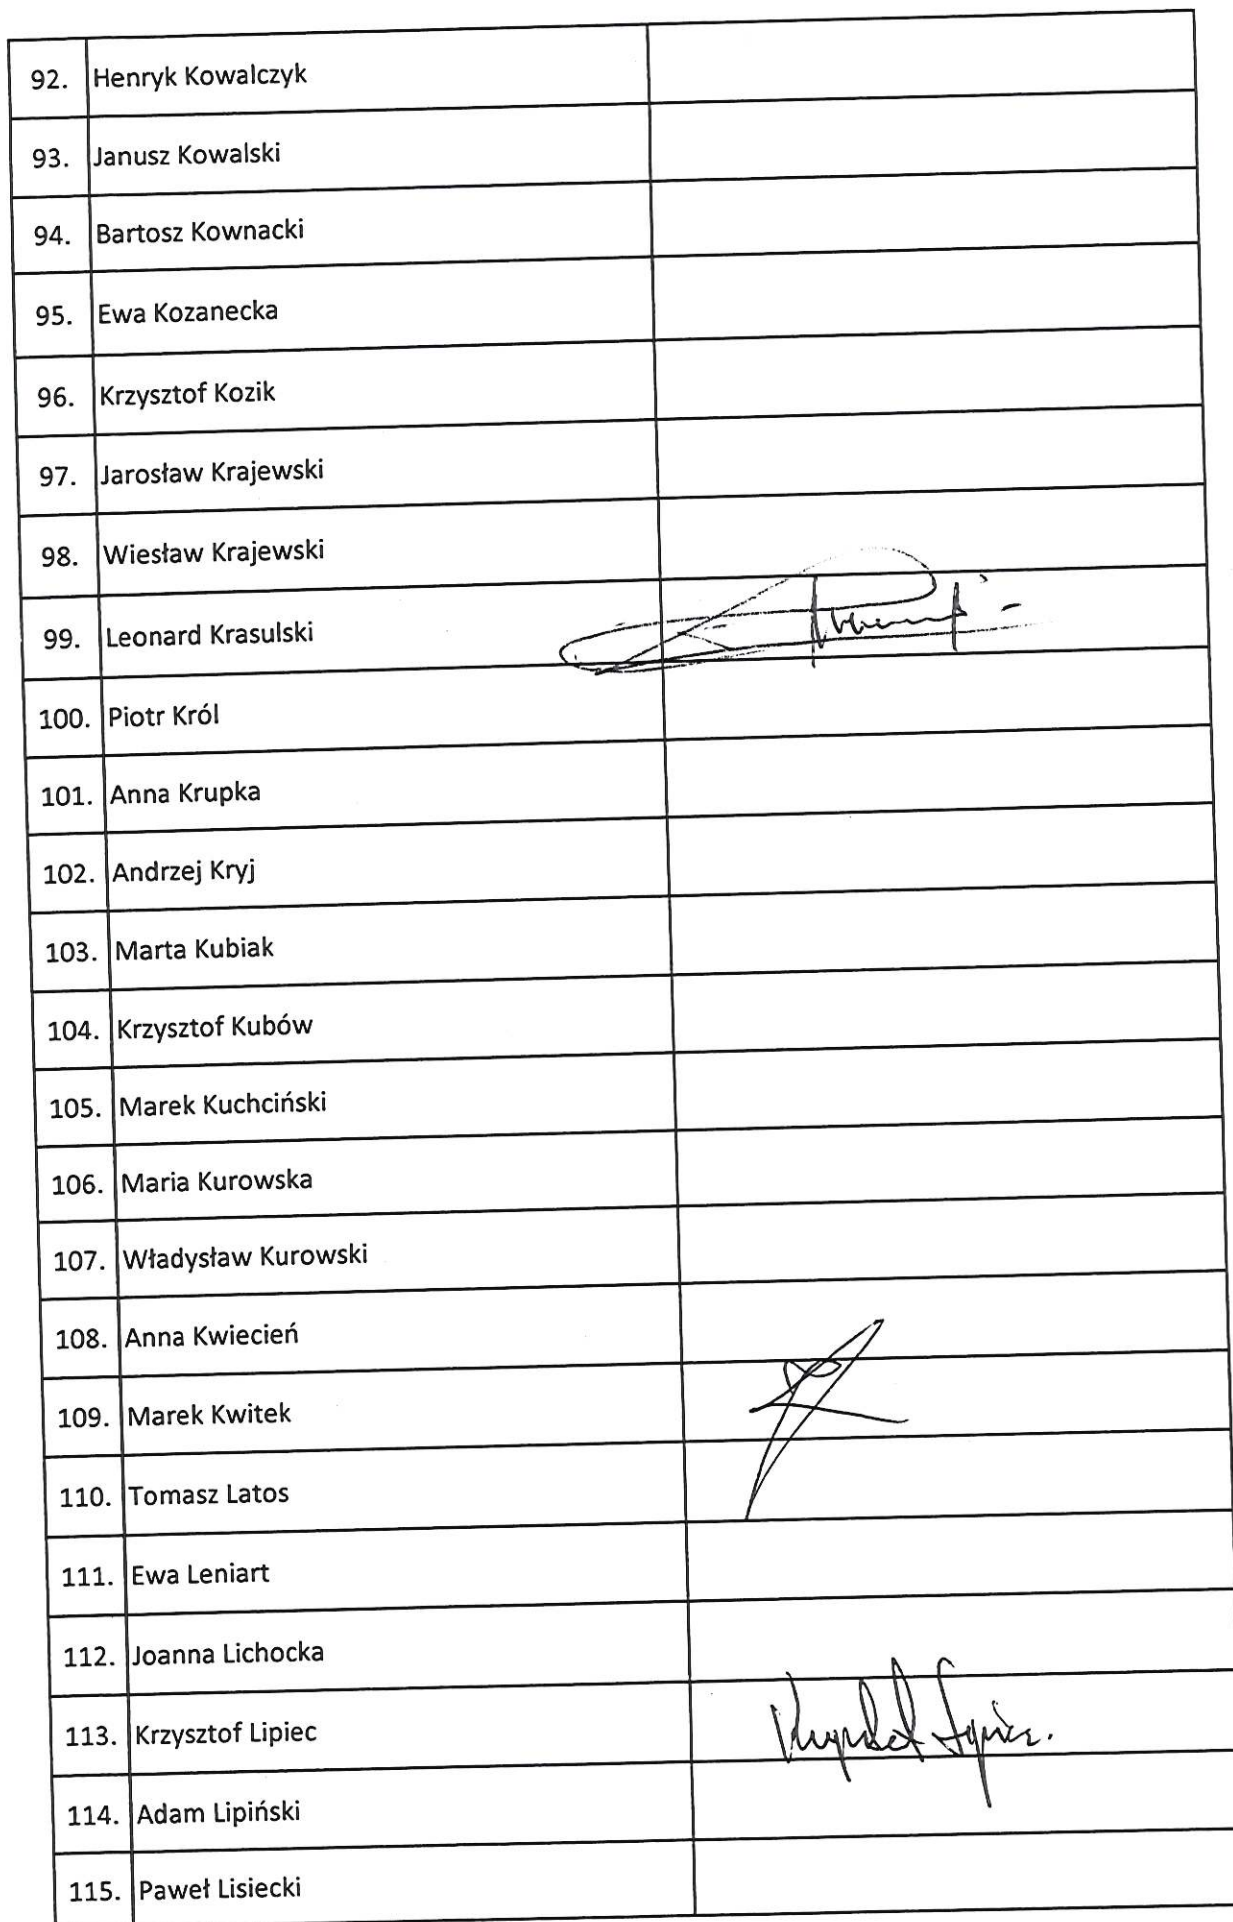 92. Henryk Kowalczyk
93. Janusz Kowalski
94. Bartosz Kownacki
95. Ewa Kozanecka
96. Krzysztof Kozik
97. Jarosław Krajewski
98. Wiesław Krajewski
99. Leonard Krasulski
100. Piotr Król
101. Anna Krupka
102. Andrzej Kryj
103. Marta Kubiak
104. Krzysztof Kubów
105. Marek Kuchciński
106. Maria Kurowska
107. Władysław Kurowski
108. Anna Kwiecień
109. Marek Kwitek
110. Tomasz Latos
111. Ewa Leniart
112. Joanna Lichocka
113. Krzysztof Lipiec
114. Adam Lipiński
115. Paweł Lisiecki